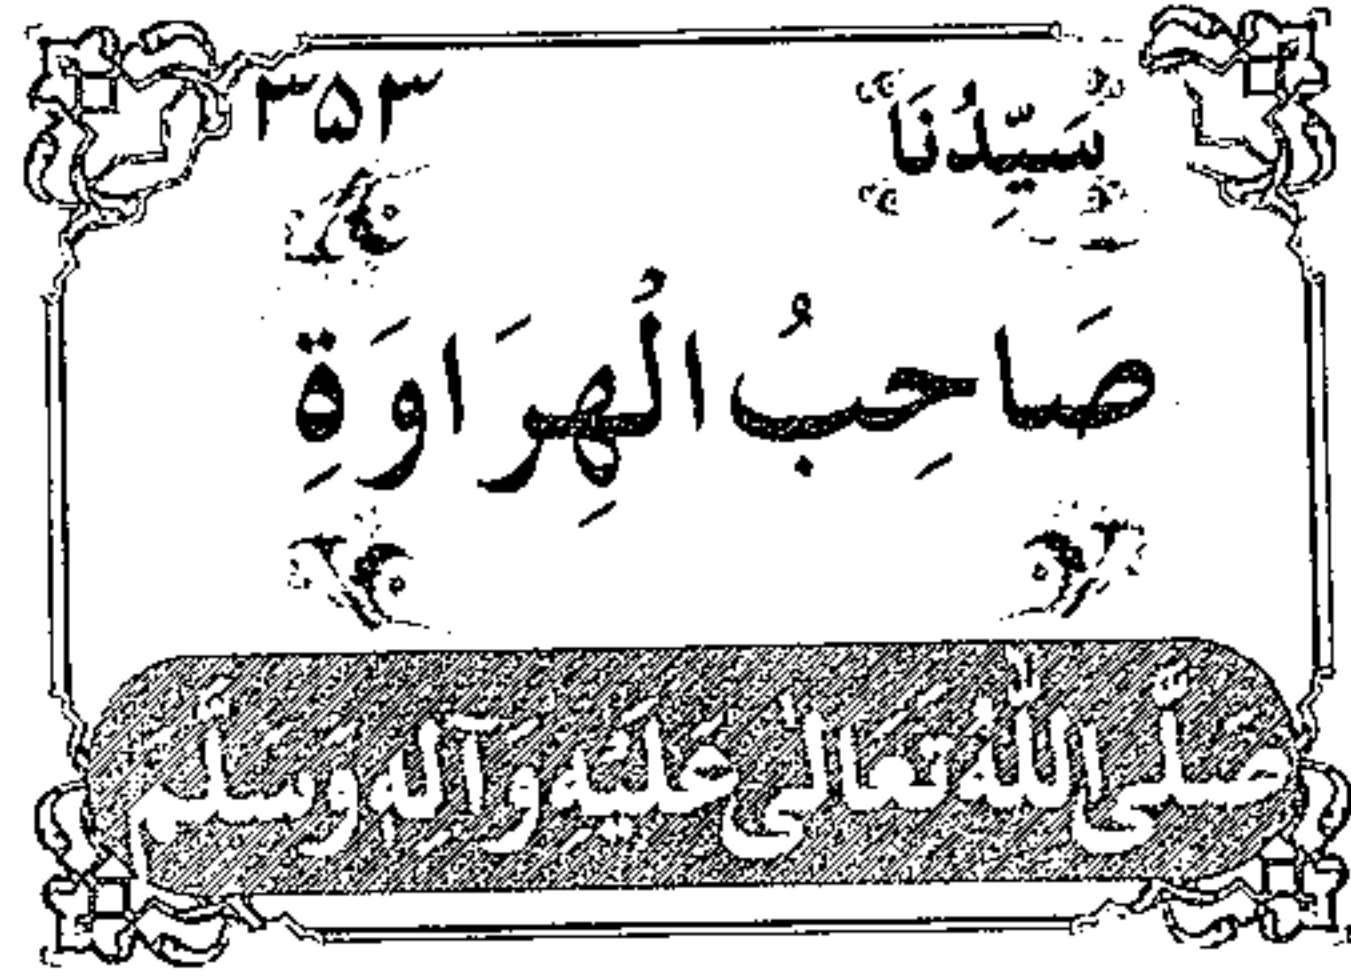 سَيِّدُنَا ۳۵۳
صَاحِبُ الْهِرَاوَةِ
صَلَّى اللّٰهُ تَعَالٰى عَلَيْهِ وَآلِهٖ وَسَلَّم